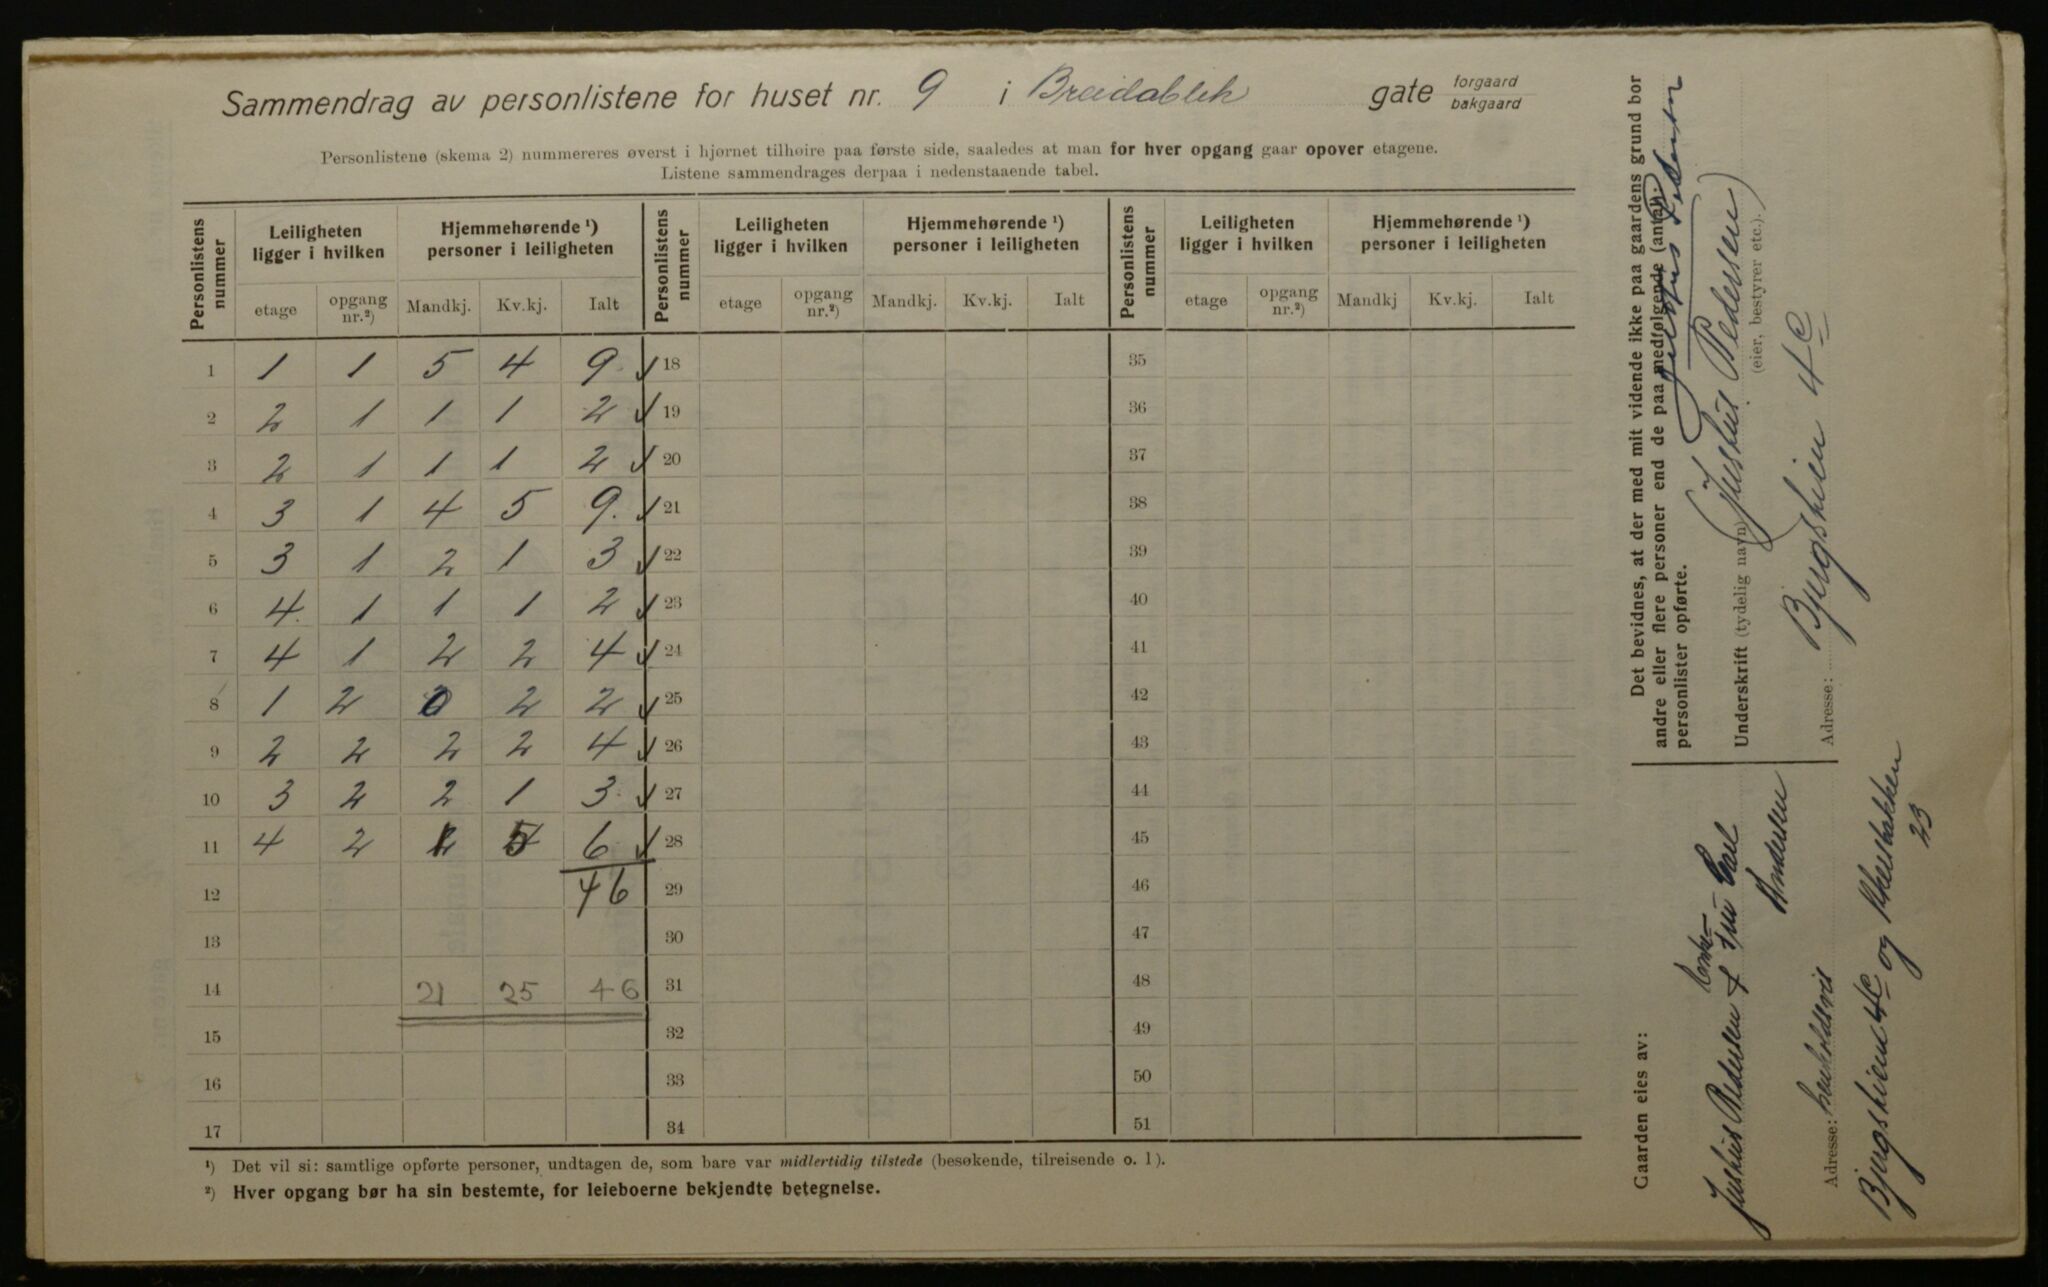 Sammendrag av personlistene for huset nr. 9 i Breidablik gate forgaard bakgaard
Personlistene (skema 2) nummereres øverst i hjørnet tilhøire paa første side, saaledes at man for hver opgang gaar opover etagene.
Listene sammendrages derpaa i nedenstaaende tabel.
Personlistens nummer | Leiligheten ligger i hvilken | Hjemmehørende ¹) personer i leiligheten | Personlistens nummer | Leiligheten ligger i hvilken | Hjemmehørende ¹) personer i leiligheten | Personlistens nummer | Leiligheten ligger i hvilken | Hjemmehørende ¹) personer i leiligheten
etage | opgang nr.²) | Mandkj. | Kv.kj. | Ialt | etage | opgang nr.²) | Mandkj. | Kv.kj. | Ialt | etage | opgang nr.²) | Mandkj | Kv.kj. | Ialt
1 1 1 5 4 9 18 35
2 2 1 1 1 2 19 36
3 2 1 1 1 2 20 37
4 3 1 4 5 9. 21 38
5 3 1 2 1 3 22 39
6 4. 1 1 1 2 23 40
7 4 1 2 2 4 24 41
8 1 2 0 2 2 25 42
9 2 2 2 2 4 26 43
10 3 2 2 1 3 27 44
11 4 2 1 5 6 28 45
12 46 29 46
13 30 47
14 21 25 46 31 48
15 32 49
16 33 50
17 34 51
¹) Det vil si: samtlige opførte personer, undtagen de, som bare var midlertidig tilstede (besøkende, tilreisende o. l).
²) Hver opgang bør ha sin bestemte, for leieboerne bekjendte betegnelse.
Det bevidnes, at der med mit vidende ikke paa gaardens grund bor
andre eller flere personer end de paa medfølgende (antal):
personlister opførte.
Julius Pedersen
Underskrift (tydelig navn) (Julius Pedersen)
(eier, bestyrer etc.).
Adresse: Bjergslien 4c
Gaarden eies av:
Julius Pedersen & fru Carl
Andersen
Adresse: henholdsvis
Bjergslien 4c og Akersbakken
23